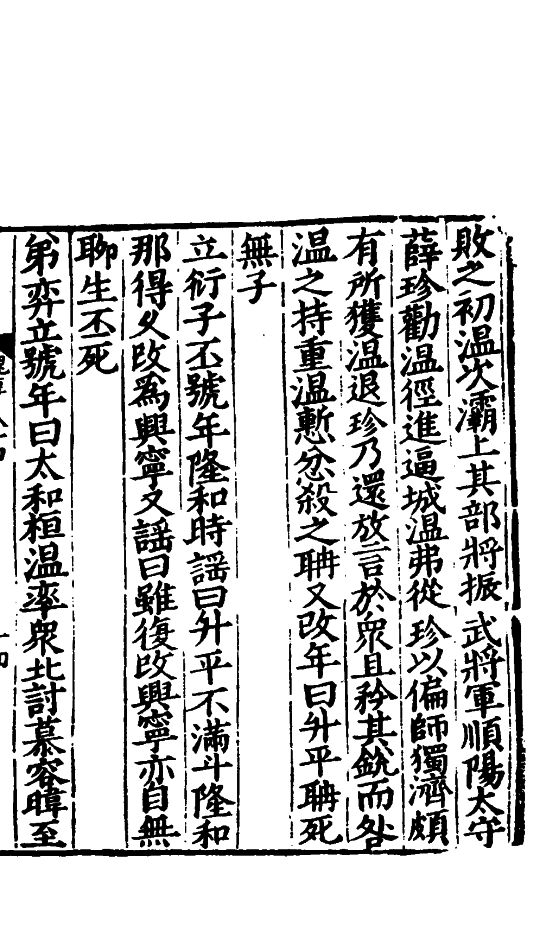 敗之初温次灞上其部將振武將軍順陽太守
薛珍勸温徑進逼城温弗從珍以偏師獨濟頗
有所獲温退珍乃還放言於衆且矜其銳而咎
温之持重温慙忿殺之聃又改年曰升平聃死
無子
立衍子丕號年隆和時謡曰升平不滿斗隆和
那得久改為興寧又謡曰雖復改興寧亦自無
聊生丕死
弟弈立號年曰太和桓温率衆北討慕容暐至